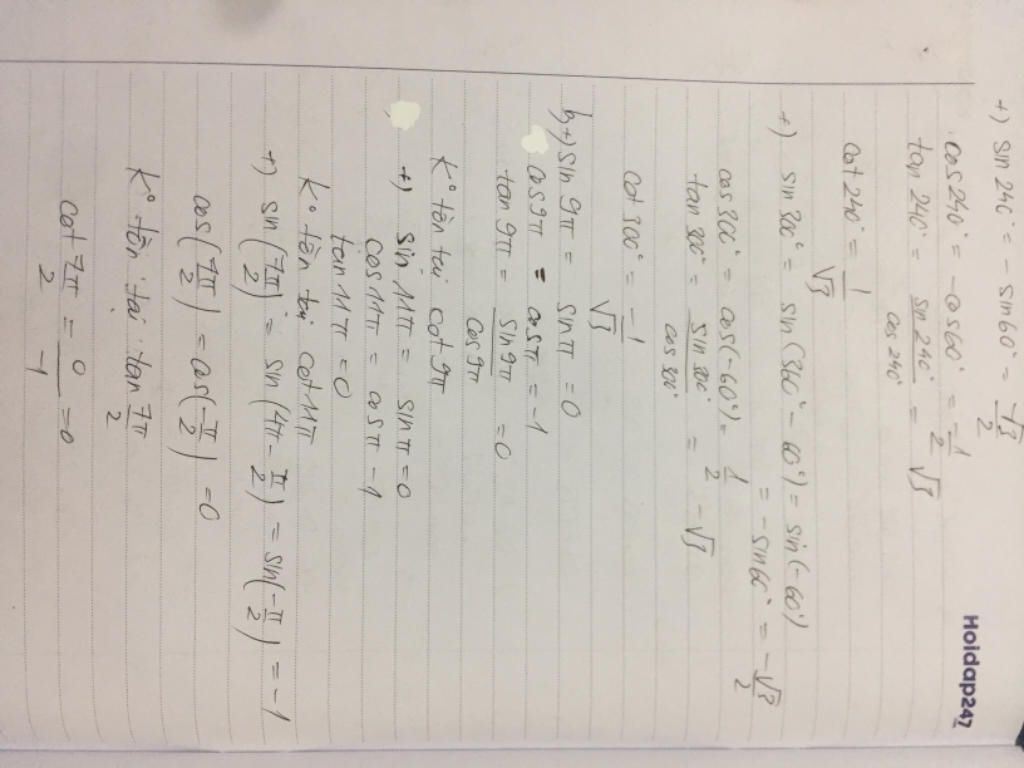 Hoidap247
+) sin 240° = - sin 60° = -√3/2
cos 240° = - cos 60° = -1/2
tan 240° = sin 240°/cos 240° = √3
cot 240° = 1/√3
+) sin 300° = sin(360° - 60°) = sin(-60°)
= - sin 60° = -√3/2
cos 300° = cos(-60°) = 1/2
tan 300° = sin 300°/cos 300° = -√3
cot 300° = -1/√3
b, +) sin 9π = sin π = 0
cos 9π = cos π = -1
tan 9π = sin 9π/cos 9π = 0
K° tồn tại cot 9π
+) sin 11π = sin π = 0
cos 11π = cos π - 1
tan 11π = 0
K° tồn tại cot 11π
+) sin(7π/2) = sin(4π - π/2) = sin(-π/2) = -1
cos(7π/2) = cos(-π/2) = 0
K° tồn tại tan 7π/2
cot 7π/2 = 0/-1 = 0